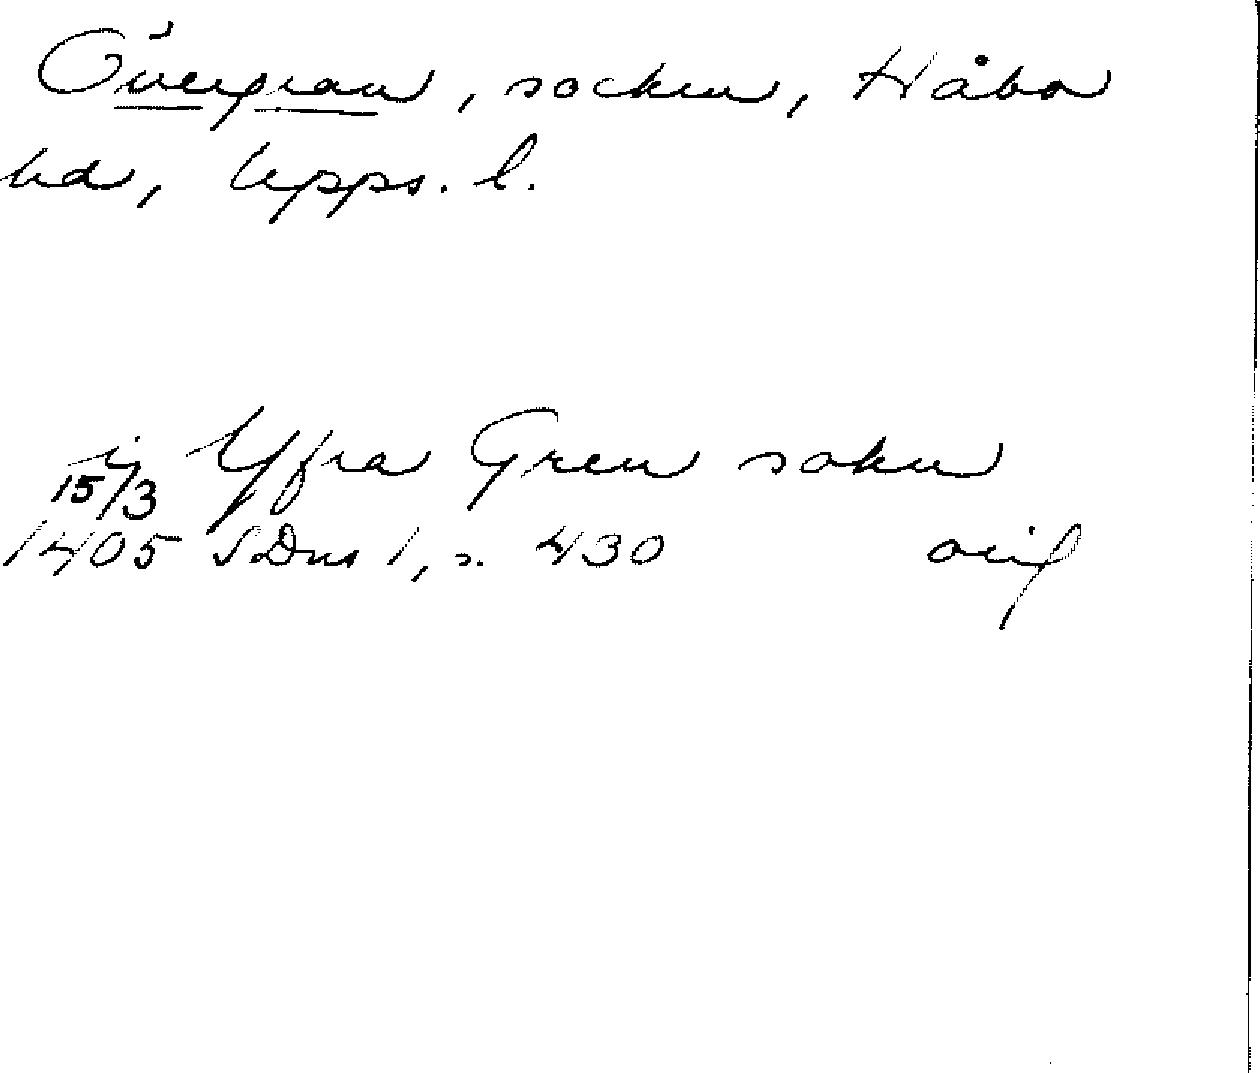 Övergran, socken, Håbo
hd, Upps. l.
i Yfra Gren sokn
15/3
1405 SDns 1, s. 430 orig